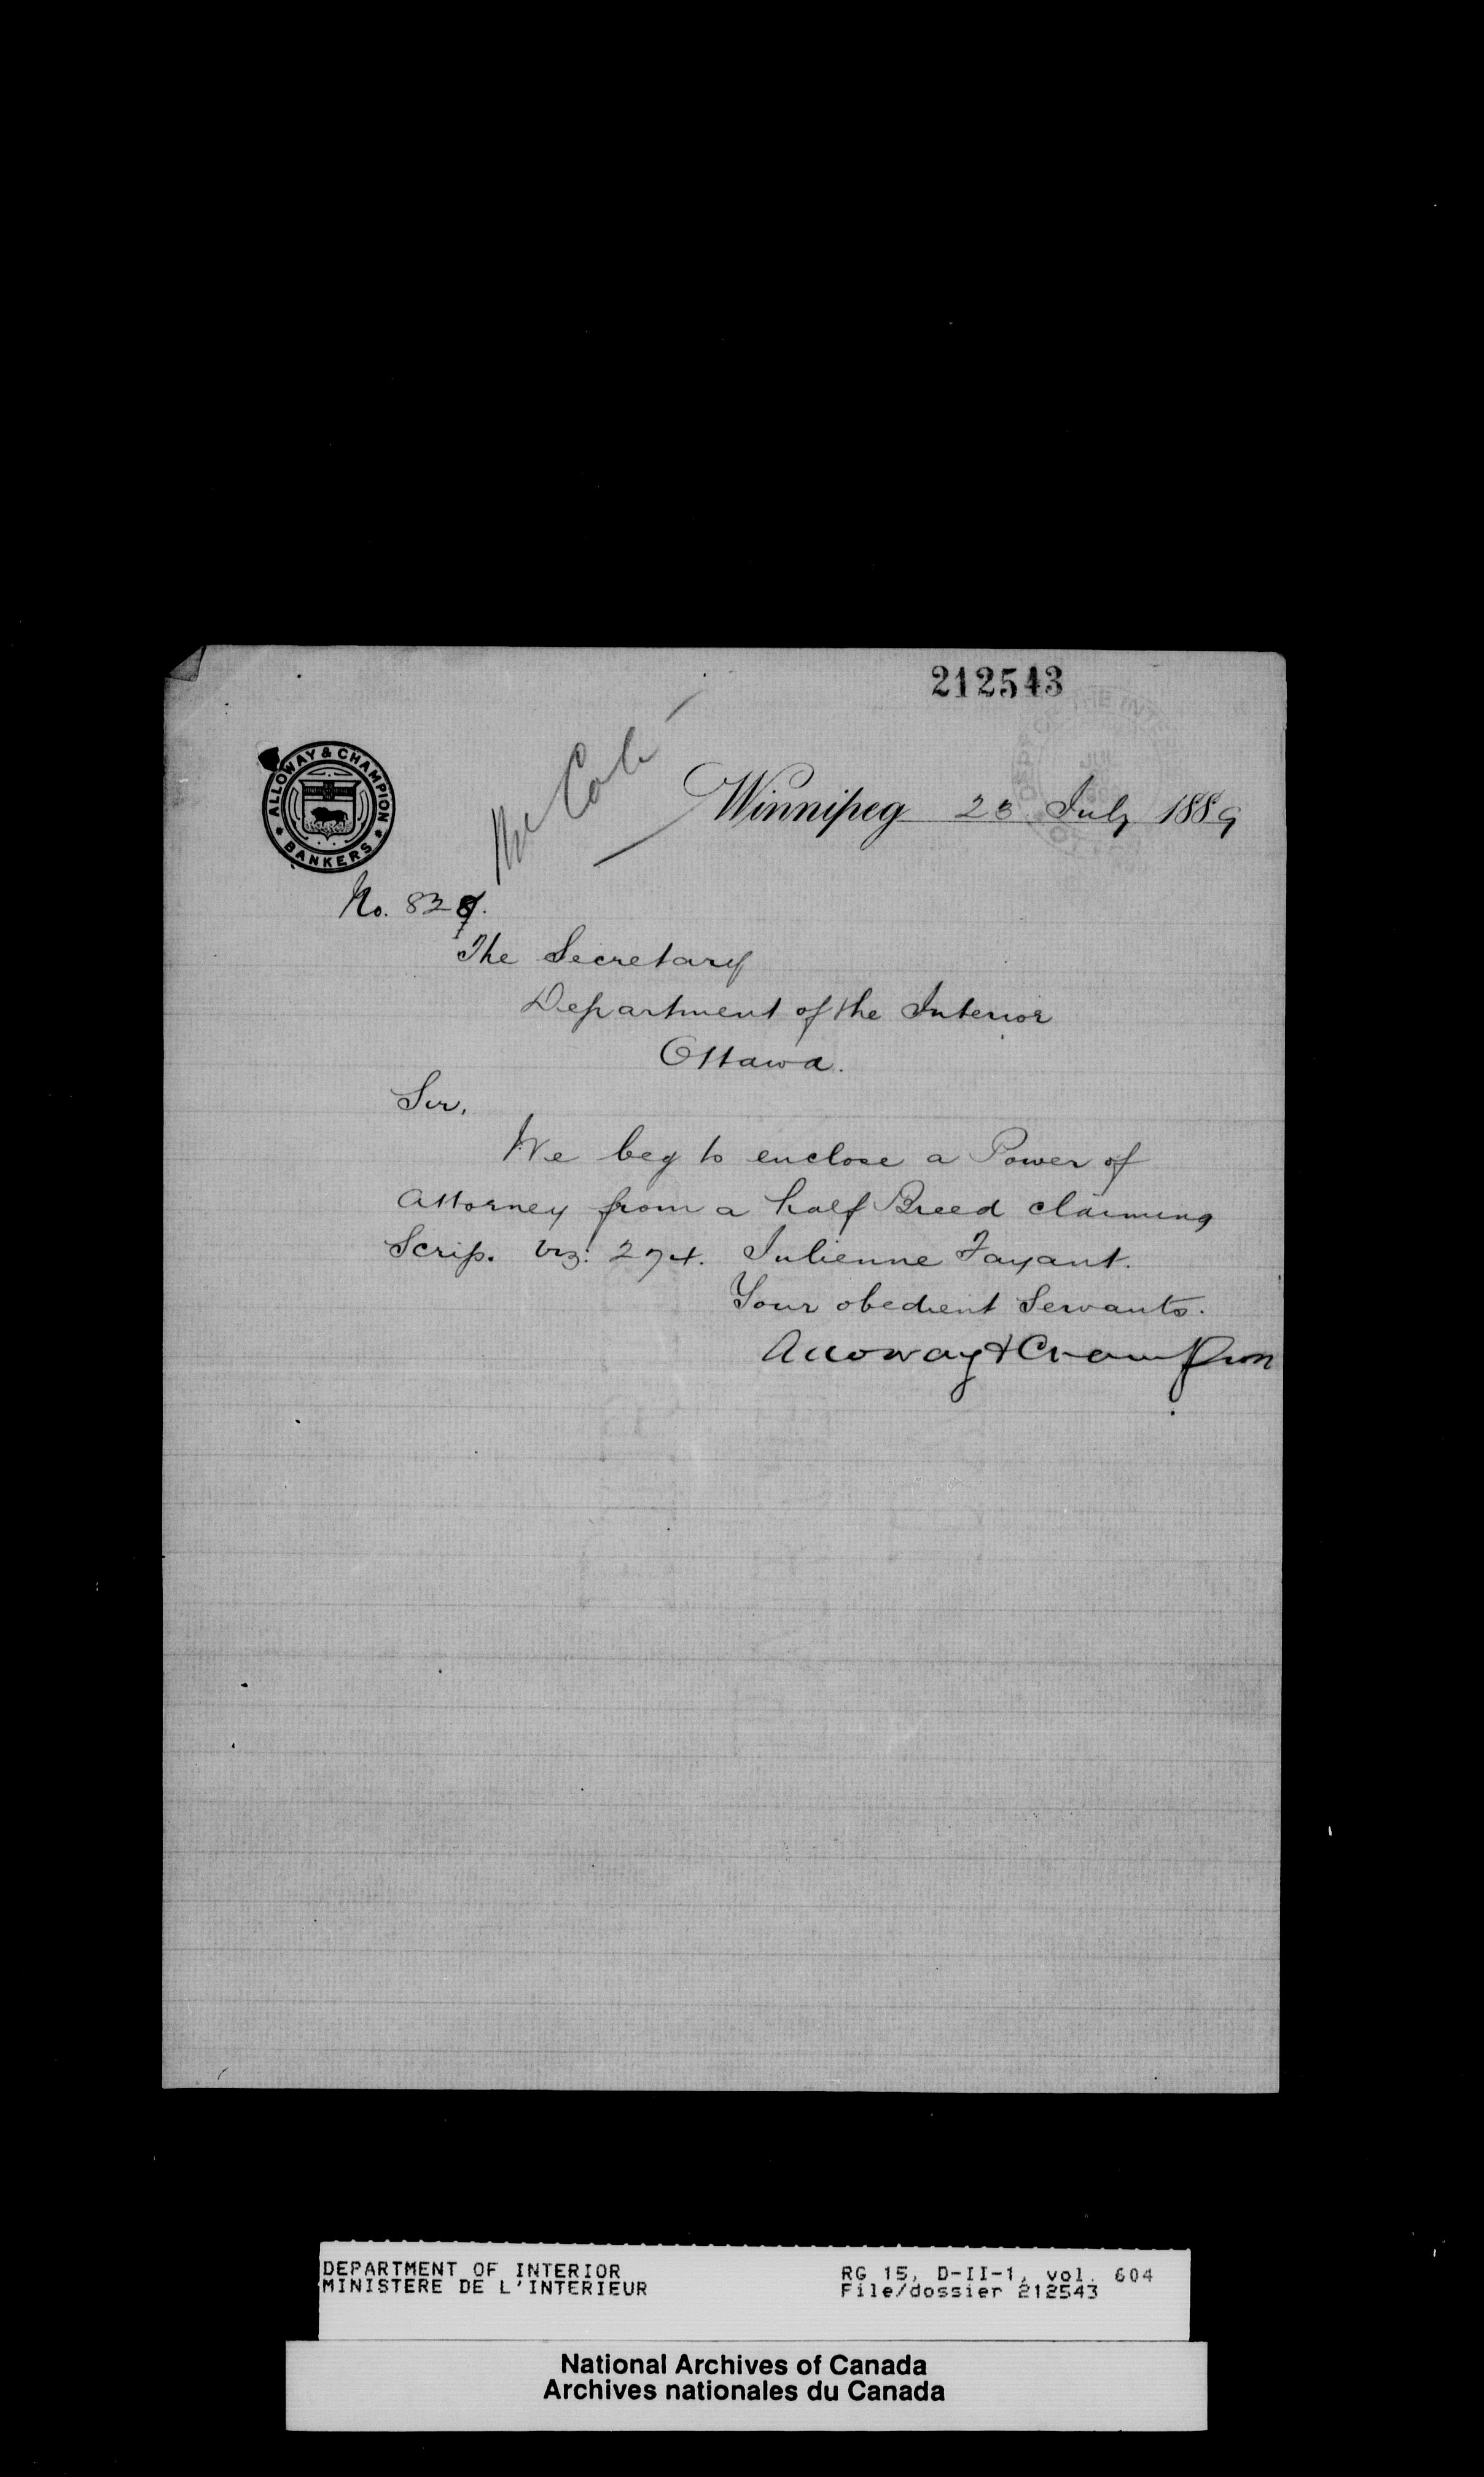 212543
ALLOWAY & CHAMPION
BANKERS
DEPT OF THE INTE
JUL
Winnipeg 23 July 1889
No. 829.
The Secretary
Department of the Interior
Ottawa.
Sir,
We beg to enclose a Power of
Attorney from a half Breed claiming
Scrip. viz: 274. Julienne Fayant.
Your obedient Servants.
Alloway & Champion
DEPARTMENT OF INTERIOR
MINISTERE DE L'INTERIEUR
RG 15, D-II-1, vol. 604
File/dossier 212543
National Archives of Canada
Archives nationales du Canada